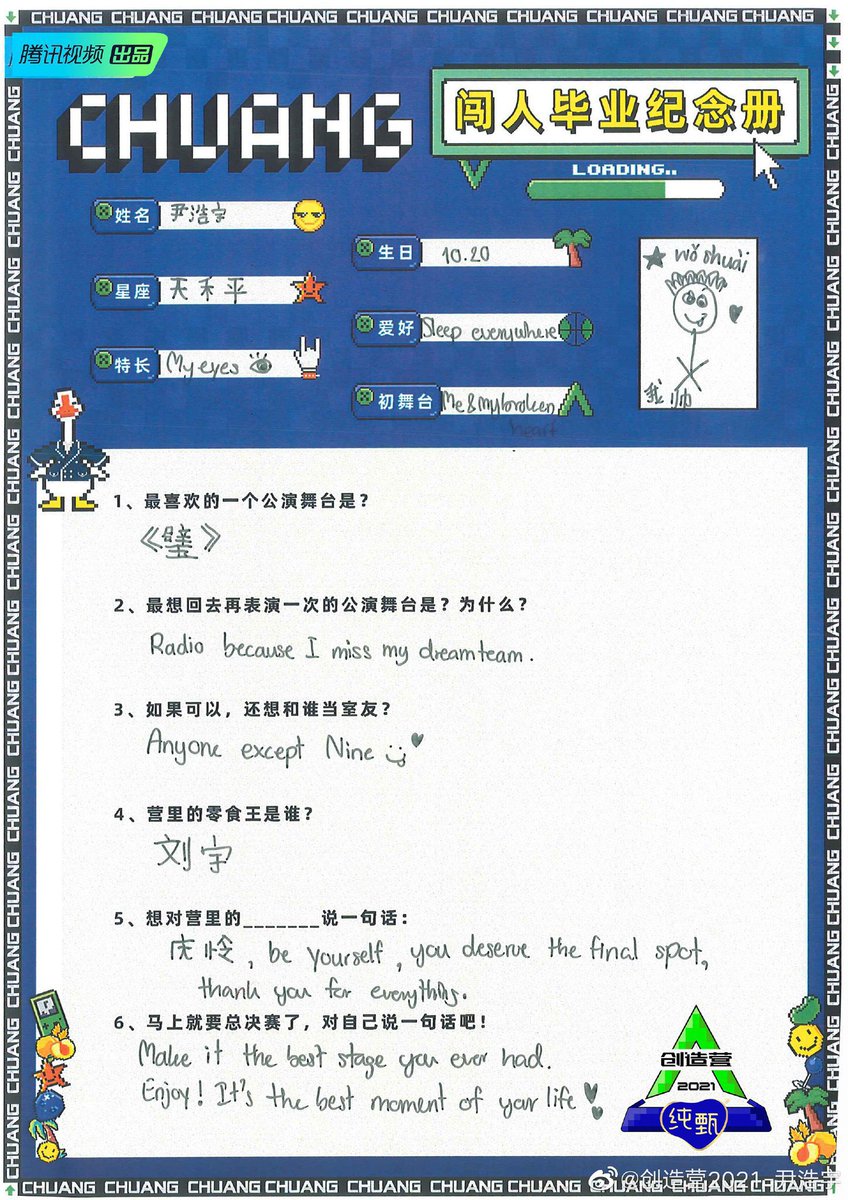 CHUANG CHUANG CHUANG CHUANG CHUANG CHUANG CHUANG CHUANG CHUANG CHUANG
腾讯视频 出品
CHUANG
闯人毕业纪念册
LOADING..
姓名 尹浩宇
生日 10.20
星座 天禾平
爱好 Sleep everywhere
特长 My eyes
初舞台 Me & my broken
heart
wǒ shuài
我帅
1、最喜欢的一个公演舞台是？
《璧》
2、最想回去再表演一次的公演舞台是？为什么？
Radio because I miss my dreamteam.
3、如果可以，还想和谁当室友？
Anyone except Nine
4、营里的零食王是谁？
刘宇
5、想对营里的_______说一句话：
庆怜, be yourself, you deserve the final spot,
thank you for everything.
6、马上就要总决赛了，对自己说一句话吧！
Make it the best stage you ever had.
Enjoy! It's the best moment of your life
创造营
2021
纯甄
@创造营2021-尹浩宇
CHUANG CHUANG CHUANG CHUANG CHUANG CHUANG CHUANG CHUANG CHUANG CHUANG